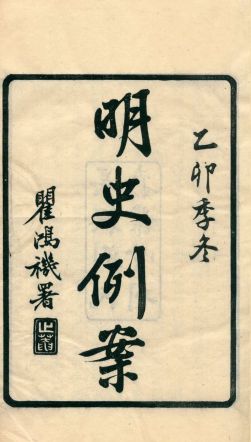 乙卯季冬
明史例案
瞿鴻禨署
止盦